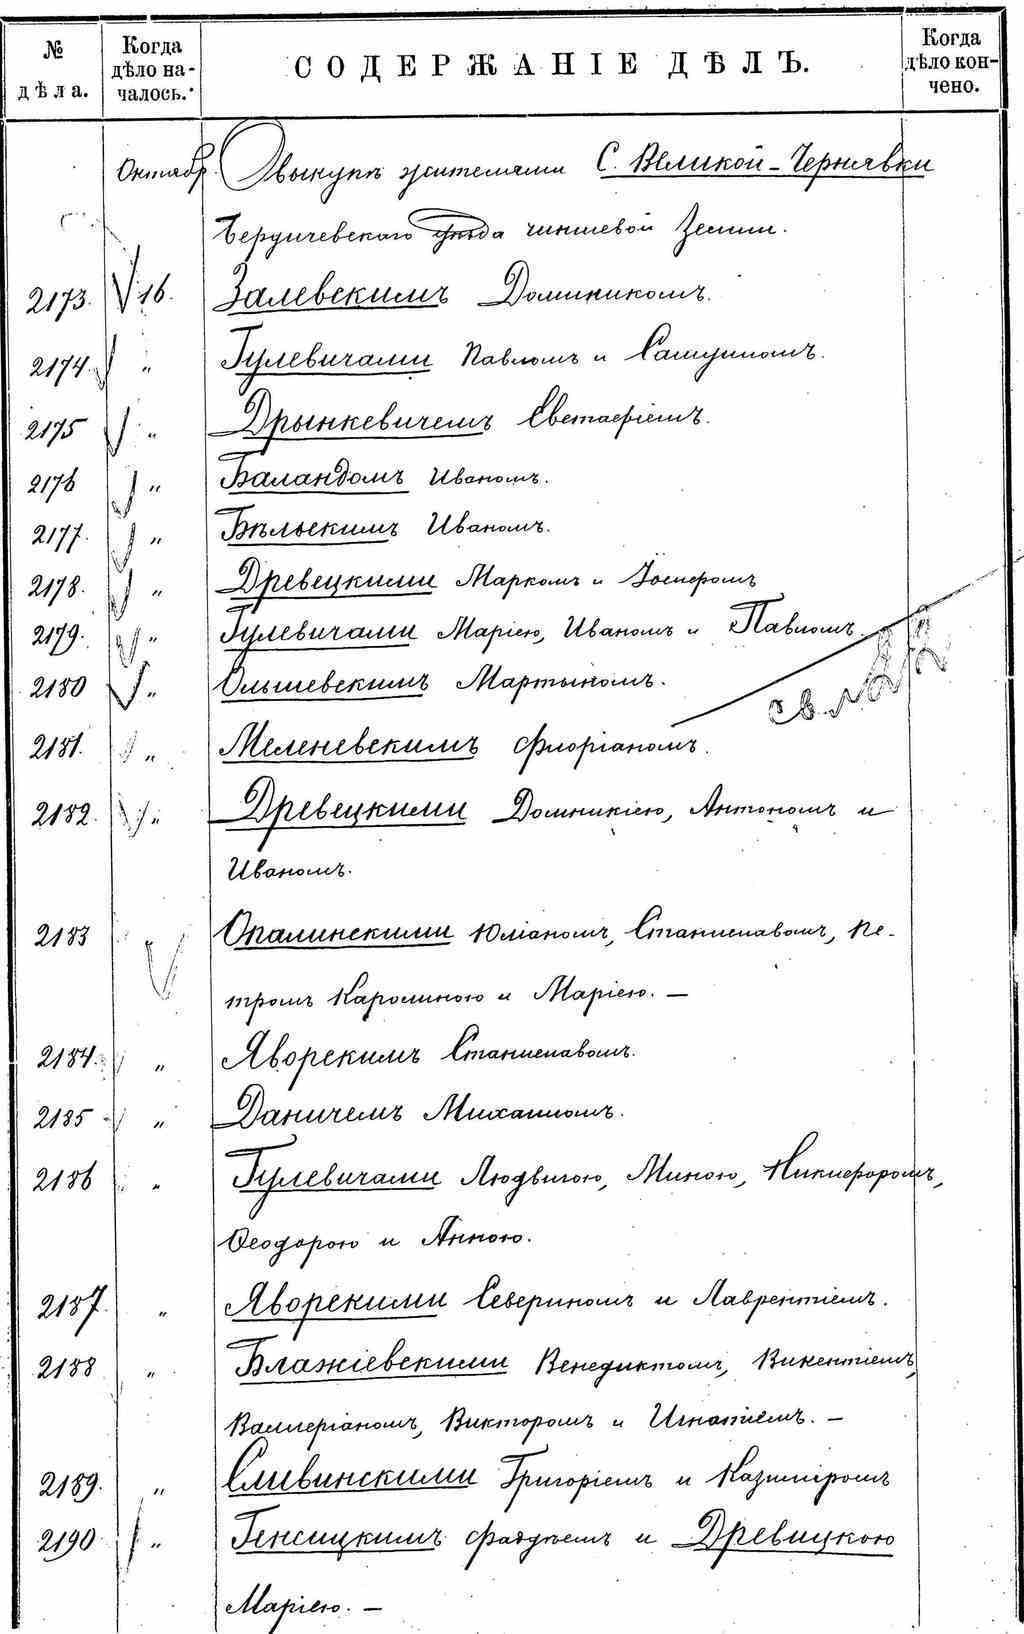 № дѣла.
Когда дѣло началось.
СОДЕРЖАНІЕ ДѢЛЪ.
Когда дѣло кончено.
Октябр. О выкупѣ жителями С. Великой-Чернявки
Бердичевскаго уѣзда чиншевой Земли.
2173. 16. Залевскимъ Доминикомъ.
2174. " Гулевичами Павломъ и
2175 " Дрынкевичемъ Евстафіемъ.
2176 " Баландомъ Иваномъ.
2177. " Бѣльскимъ Иваномъ.
2178. " Древецкими Маркомъ и Іосифомъ
2179. " Гулевичами Маріею, Иваномъ и Павломъ
2180 " Ольшевскимъ Мартыномъ.
2181. " Меленевскимъ Флоріаномъ.
2182. " Древецкими Домникіею, Антономъ и
Иваномъ.
2183 Опалинскими Юліаномъ, Станиславомъ, Пе-
тромъ Каролиною и Маріею. —
2184. " Яворскимъ Станиславомъ.
2185 " Даничемъ Михаиломъ.
2186 " Гулевичами Людвигою, Миною, Никифоромъ,
Ѳеодорою и Анною.
2187. " Яворскими Севериномъ и Лаврентіемъ.
2188 " Блажіевскими Венедиктомъ, Викентіемъ,
Валлеріаномъ, Викторомъ и Игнатіемъ. —
2189. " Сливинскими Григоріемъ и Казиміромъ
2190 " Генсицкимъ и Древицкою
Маріею. —